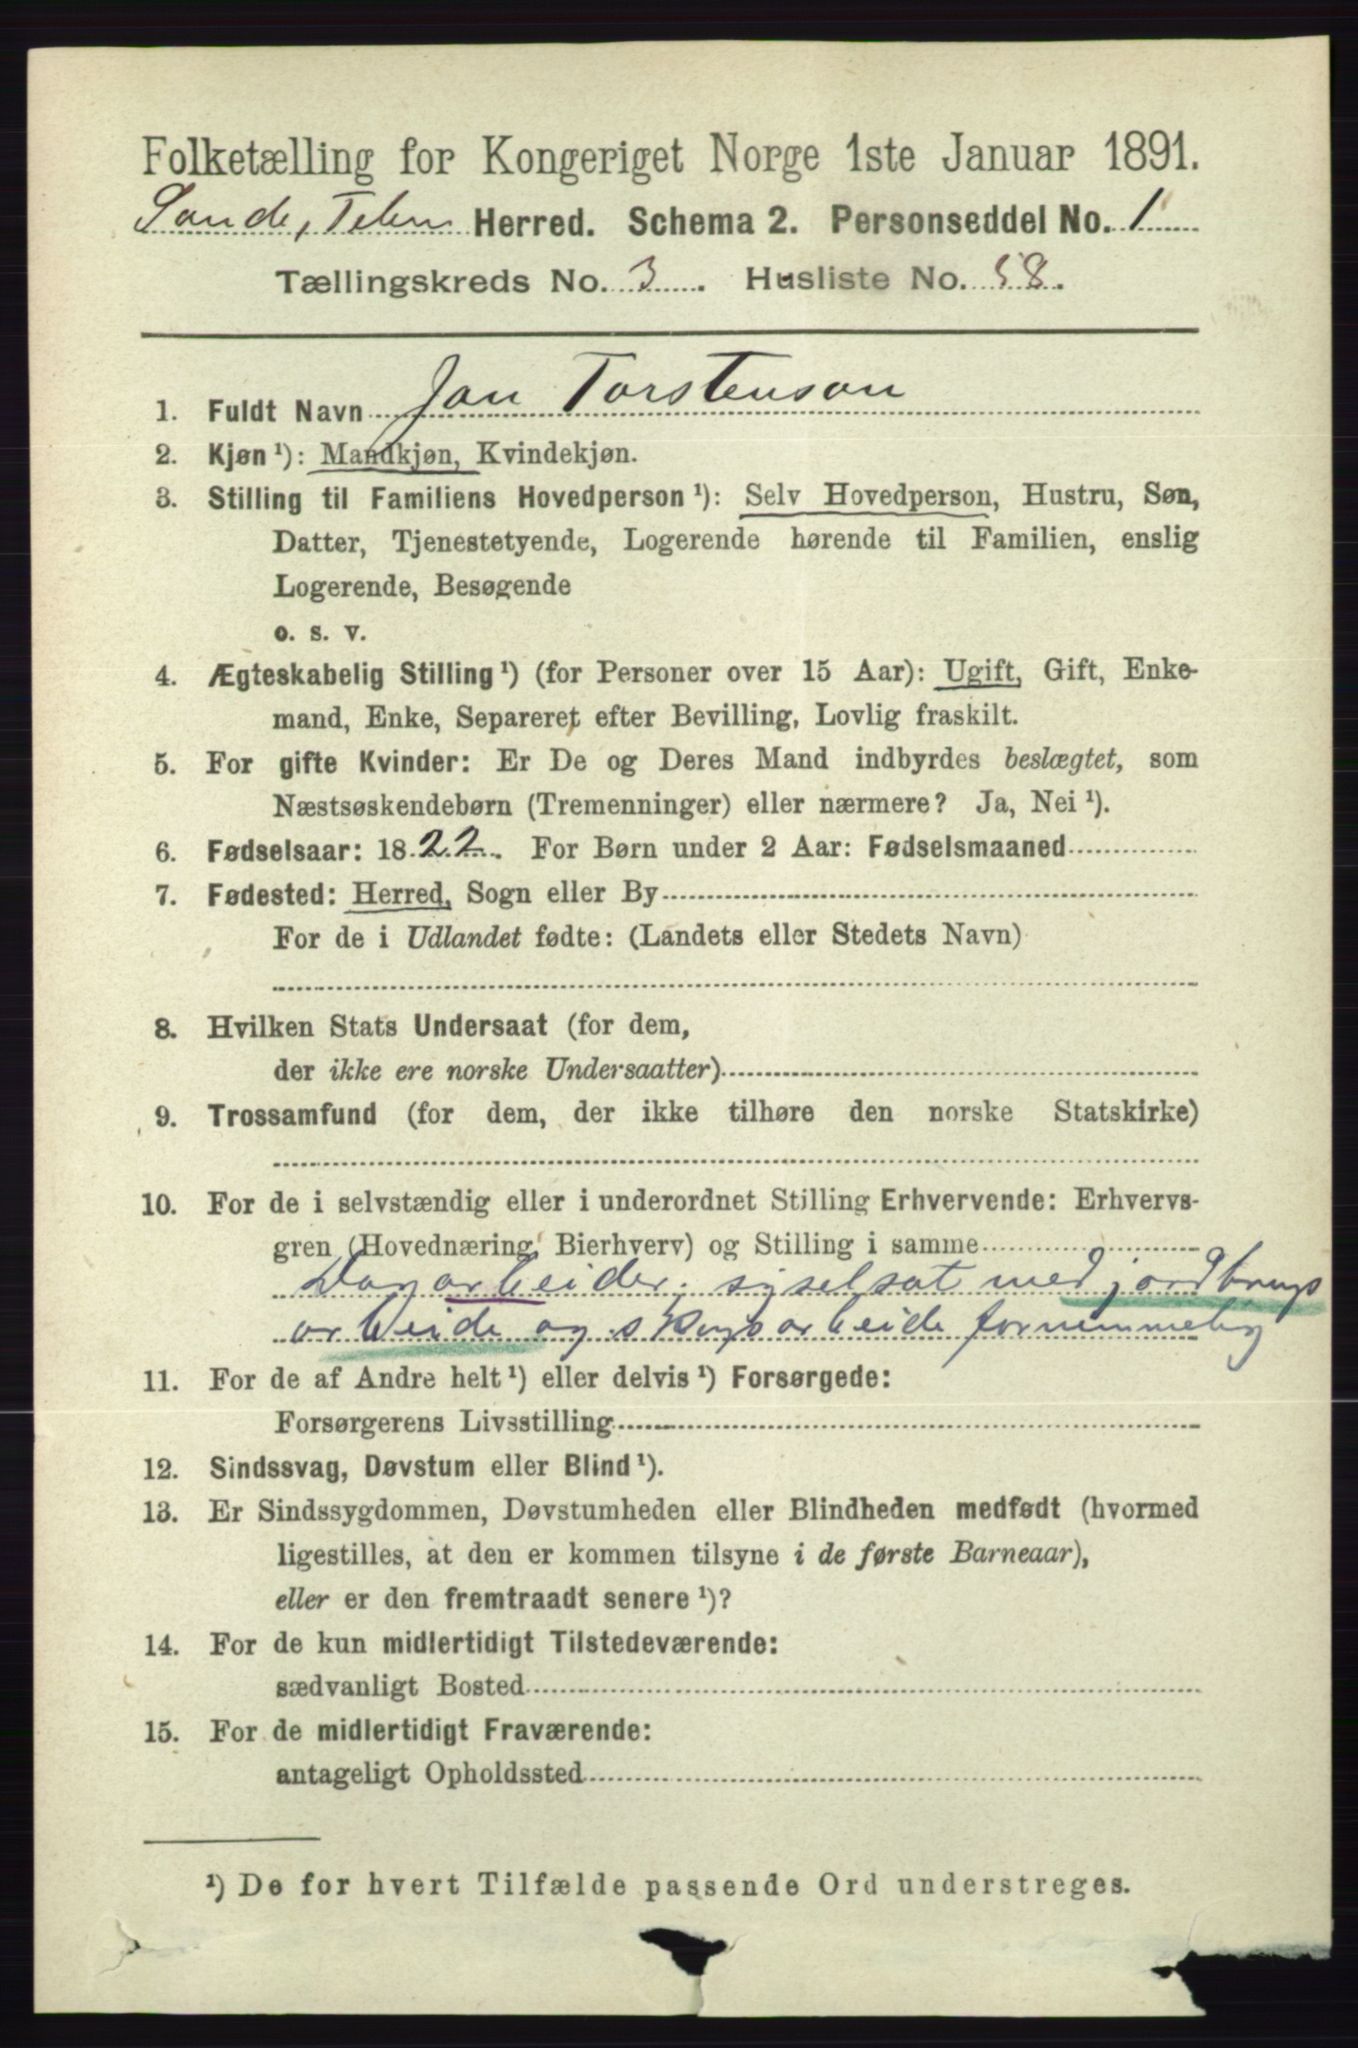 Folketælling for Kongeriget Norge 1ste Januar 1891.
Sande, Telem Herred. Schema 2. Personseddel No. 1
Tællingskreds No. 3. Husliste No. 58.
1. Fuldt Navn Jon Torstenson
2. Kjøn ¹): Mandkjøn, Kvindekjøn.
3. Stilling til Familiens Hovedperson ¹): Selv Hovedperson, Hustru, Søn,
Datter, Tjenestetyende, Logerende hørende til Familien, enslig
Logerende, Besøgende
o. s. v.
4. Ægteskabelig Stilling ¹) (for Personer over 15 Aar): Ugift, Gift, Enke-
mand, Enke, Separeret efter Bevilling, Lovlig fraskilt.
5. For gifte Kvinder: Er De og Deres Mand indbyrdes beslægtet, som
Næstsøskendebørn (Tremenninger) eller nærmere? Ja, Nei ¹).
6. Fødselsaar: 1822. For Børn under 2 Aar: Fødselsmaaned
7. Fødested: Herred, Sogn eller By
For de i Udlandet fødte: (Landets eller Stedets Navn)
8. Hvilken Stats Undersaat (for dem,
der ikke ere norske Undersaatter)
9. Trossamfund (for dem, der ikke tilhøre den norske Statskirke)
10. For de i selvstændig eller i underordnet Stilling Erhvervende: Erhvervs-
gren (Hovednæring, Bierhverv) og Stilling i samme
Dagarbeider, syselsat med jordbrugs
arbeide og skogsarbeide fornemmelig
11. For de af Andre helt ¹) eller delvis ¹) Forsørgede:
Forsørgerens Livsstilling
12. Sindssvag, Døvstum eller Blind ¹).
13. Er Sindssygdommen, Døvstumheden eller Blindheden medfødt (hvormed
ligestilles, at den er kommen tilsyne i de første Barneaar),
eller er den fremtraadt senere ¹)?
14. For de kun midlertidigt Tilstedeværende:
sædvanligt Bosted
15. For de midlertidigt Fraværende:
antageligt Opholdssted
¹) De for hvert Tilfælde passende Ord understreges.